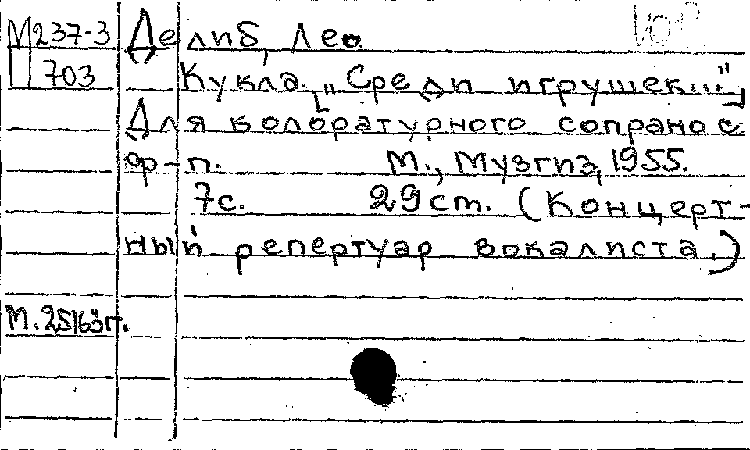 М237-3 Делиб, Лео.
П703 Кукла. [„Среди игрушек..."]
Для колоратурного сопрано с
ф-п. М., Музгиз, 1955.
7с. 29 cm. (Концерт-
ный репертуар вокалиста.)